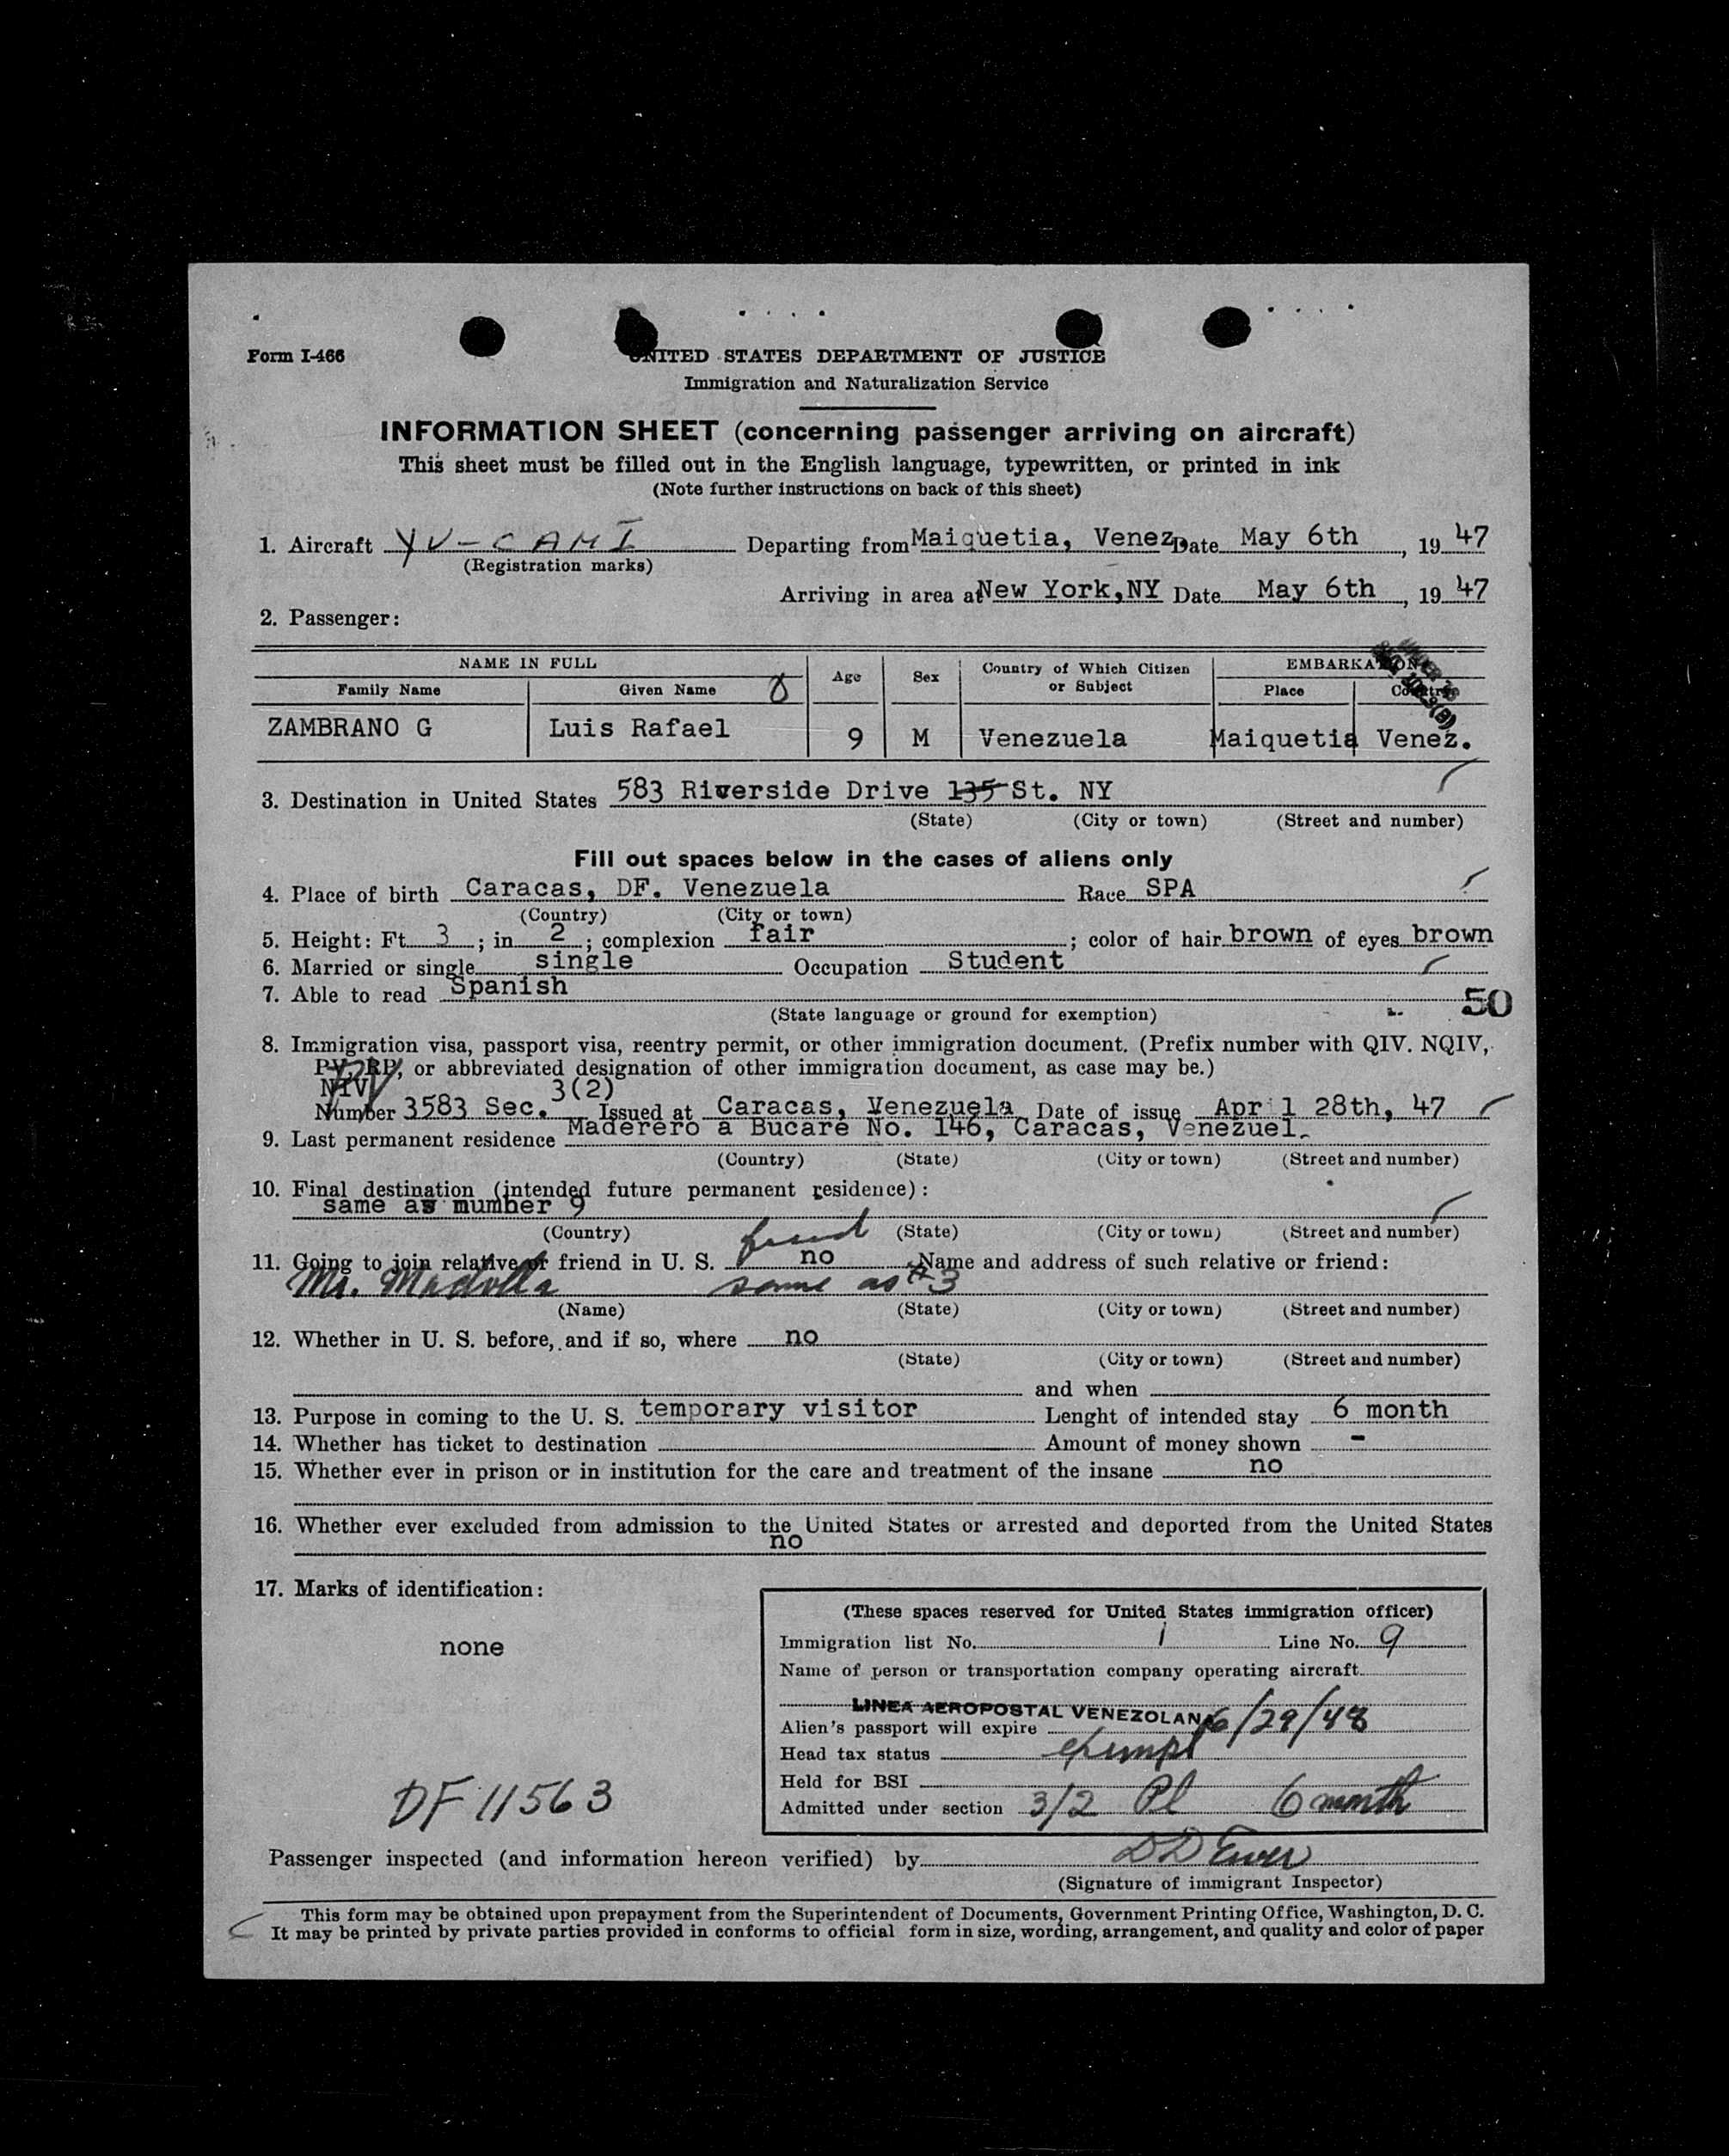 Form I-466
UNITED STATES DEPARTMENT OF JUSTICE
Immigration and Naturalization Service
INFORMATION SHEET (concerning passenger arriving on aircraft)
This sheet must be filled out in the English language, typewritten, or printed in ink
(Note further instructions on back of this sheet)
1. Aircraft YV-CAMI Departing from Maiquetia, Venez. Date May 6th, 19 47
(Registration marks)
Arriving in area at New York,NY Date May 6th, 19 47
2. Passenger:
NAME IN FULL Age Sex Country of Which Citizen or Subject EMBARKATION
Family Name Given Name Place Country
ZAMBRANO G Luis Rafael 9 M Venezuela Maiquetia Venez.
3. Destination in United States 583 Riverside Drive 135 St. NY
(State) (City or town) (Street and number)
Fill out spaces below in the cases of aliens only
4. Place of birth Caracas, DF. Venezuela Race SPA
(Country) (City or town)
5. Height: Ft. 3; in 2; complexion fair; color of hair brown of eyes brown
6. Married or single single Occupation Student
7. Able to read Spanish
(State language or ground for exemption) 50
8. Immigration visa, passport visa, reentry permit, or other immigration document. (Prefix number with QIV. NQIV,
PV, RP, or abbreviated designation of other immigration document, as case may be.)
NIV 3(2)
Number 3583 Sec. Issued at Caracas, Venezuela Date of issue Apr 1 28th, 47
9. Last permanent residence Maderero a Bucare No. 146, Caracas, Venezuel.
(Country) (State) (City or town) (Street and number)
10. Final destination (intended future permanent residence):
same as mumber 9
(Country) (State) (City or town) (Street and number)
friend
11. Going to join relative or friend in U. S. no Name and address of such relative or friend:
Mr. same as #3
(Name) (State) (City or town) (Street and number)
12. Whether in U. S. before, and if so, where no
(State) (City or town) (Street and number)
and when
13. Purpose in coming to the U. S. temporary visitor Lenght of intended stay 6 month
14. Whether has ticket to destination Amount of money shown -
15. Whether ever in prison or in institution for the care and treatment of the insane no
16. Whether ever excluded from admission to the United States or arrested and deported from the United States
no
17. Marks of identification:
none
DF 11563
(These spaces reserved for United States immigration officer)
Immigration list No. 1 Line No. 9
Name of person or transportation company operating aircraft
LINEA AEROPOSTAL VENEZOLANA
Alien's passport will expire 6/29/48
Head tax status exempt
Held for BSI
Admitted under section 3/2 Pl 6 month
Passenger inspected (and information hereon verified) by
(Signature of immigrant Inspector)
This form may be obtained upon prepayment from the Superintendent of Documents, Government Printing Office, Washington, D. C.
It may be printed by private parties provided in conforms to official form in size, wording, arrangement, and quality and color of paper